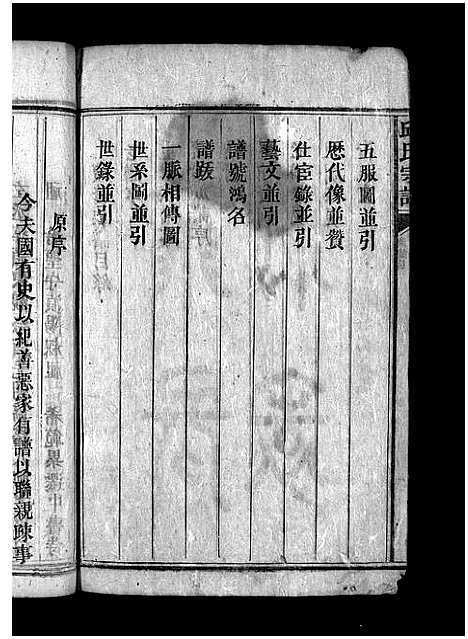 邱氏宗譜
五服圖並引
歷代像並贊
仕宦錄並引
藝文並引
譜號鴻名
譜跋
一脈相傳圖
世系圖並引
世錄並引
原序
今夫國有史以紀善惡家有譜以聯親疎事